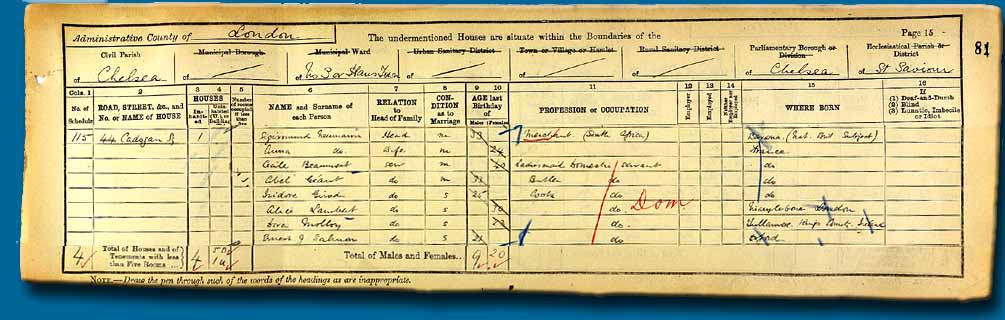 Administrative County of London The undermentioned Houses are situate within the Boundaries of the Page 15 81
Civil Parish Municipal Borough Municipal Ward Urban Sanitary District Town or Village or Hamlet Rural Sanitary District Parliamentary Borough or Division Ecclesiastical Parish or District
of Chelsea of of No 3 or Hans Town of of of of Chelsea of St Saviour
Cols. 1 2 3 4 5 6 7 8 9 10 11 12 13 14 15 16
No. of Schedule ROAD, STREET, &c., and No. or NAME of HOUSE HOUSES Inhabited Number of rooms occupied if less than five NAME and Surname of each Person RELATION to Head of Family CONDITION as to Marriage AGE last Birthday of Males Females PROFESSION or OCCUPATION Employer Employed WHERE BORN (1) Deaf-and-Dumb (2) Blind (3) Lunatic, Imbecile or Idiot
115 44 Cadogan Sq 1 Sigismund Neumann Head m 33 Merchant (South Africa) (Nat. Brit Subject)
Anna do. Wife m 24 France
Beaumont serv m Ladiesmaid Domestic servant do
Abel m 33 Butler do do
Isidore Girod do s 25 Cook do do
Alice Lambert do s 30 do. Dom Marylebone London
Molloy do s do.
Ernest J Salmon do s 21 do
4 Total of Houses and of Tenements with less than Five Rooms 4 Total of Males and Females 9 20
NOTE.—Draw the pen through such of the words of the headings as are inappropriate.